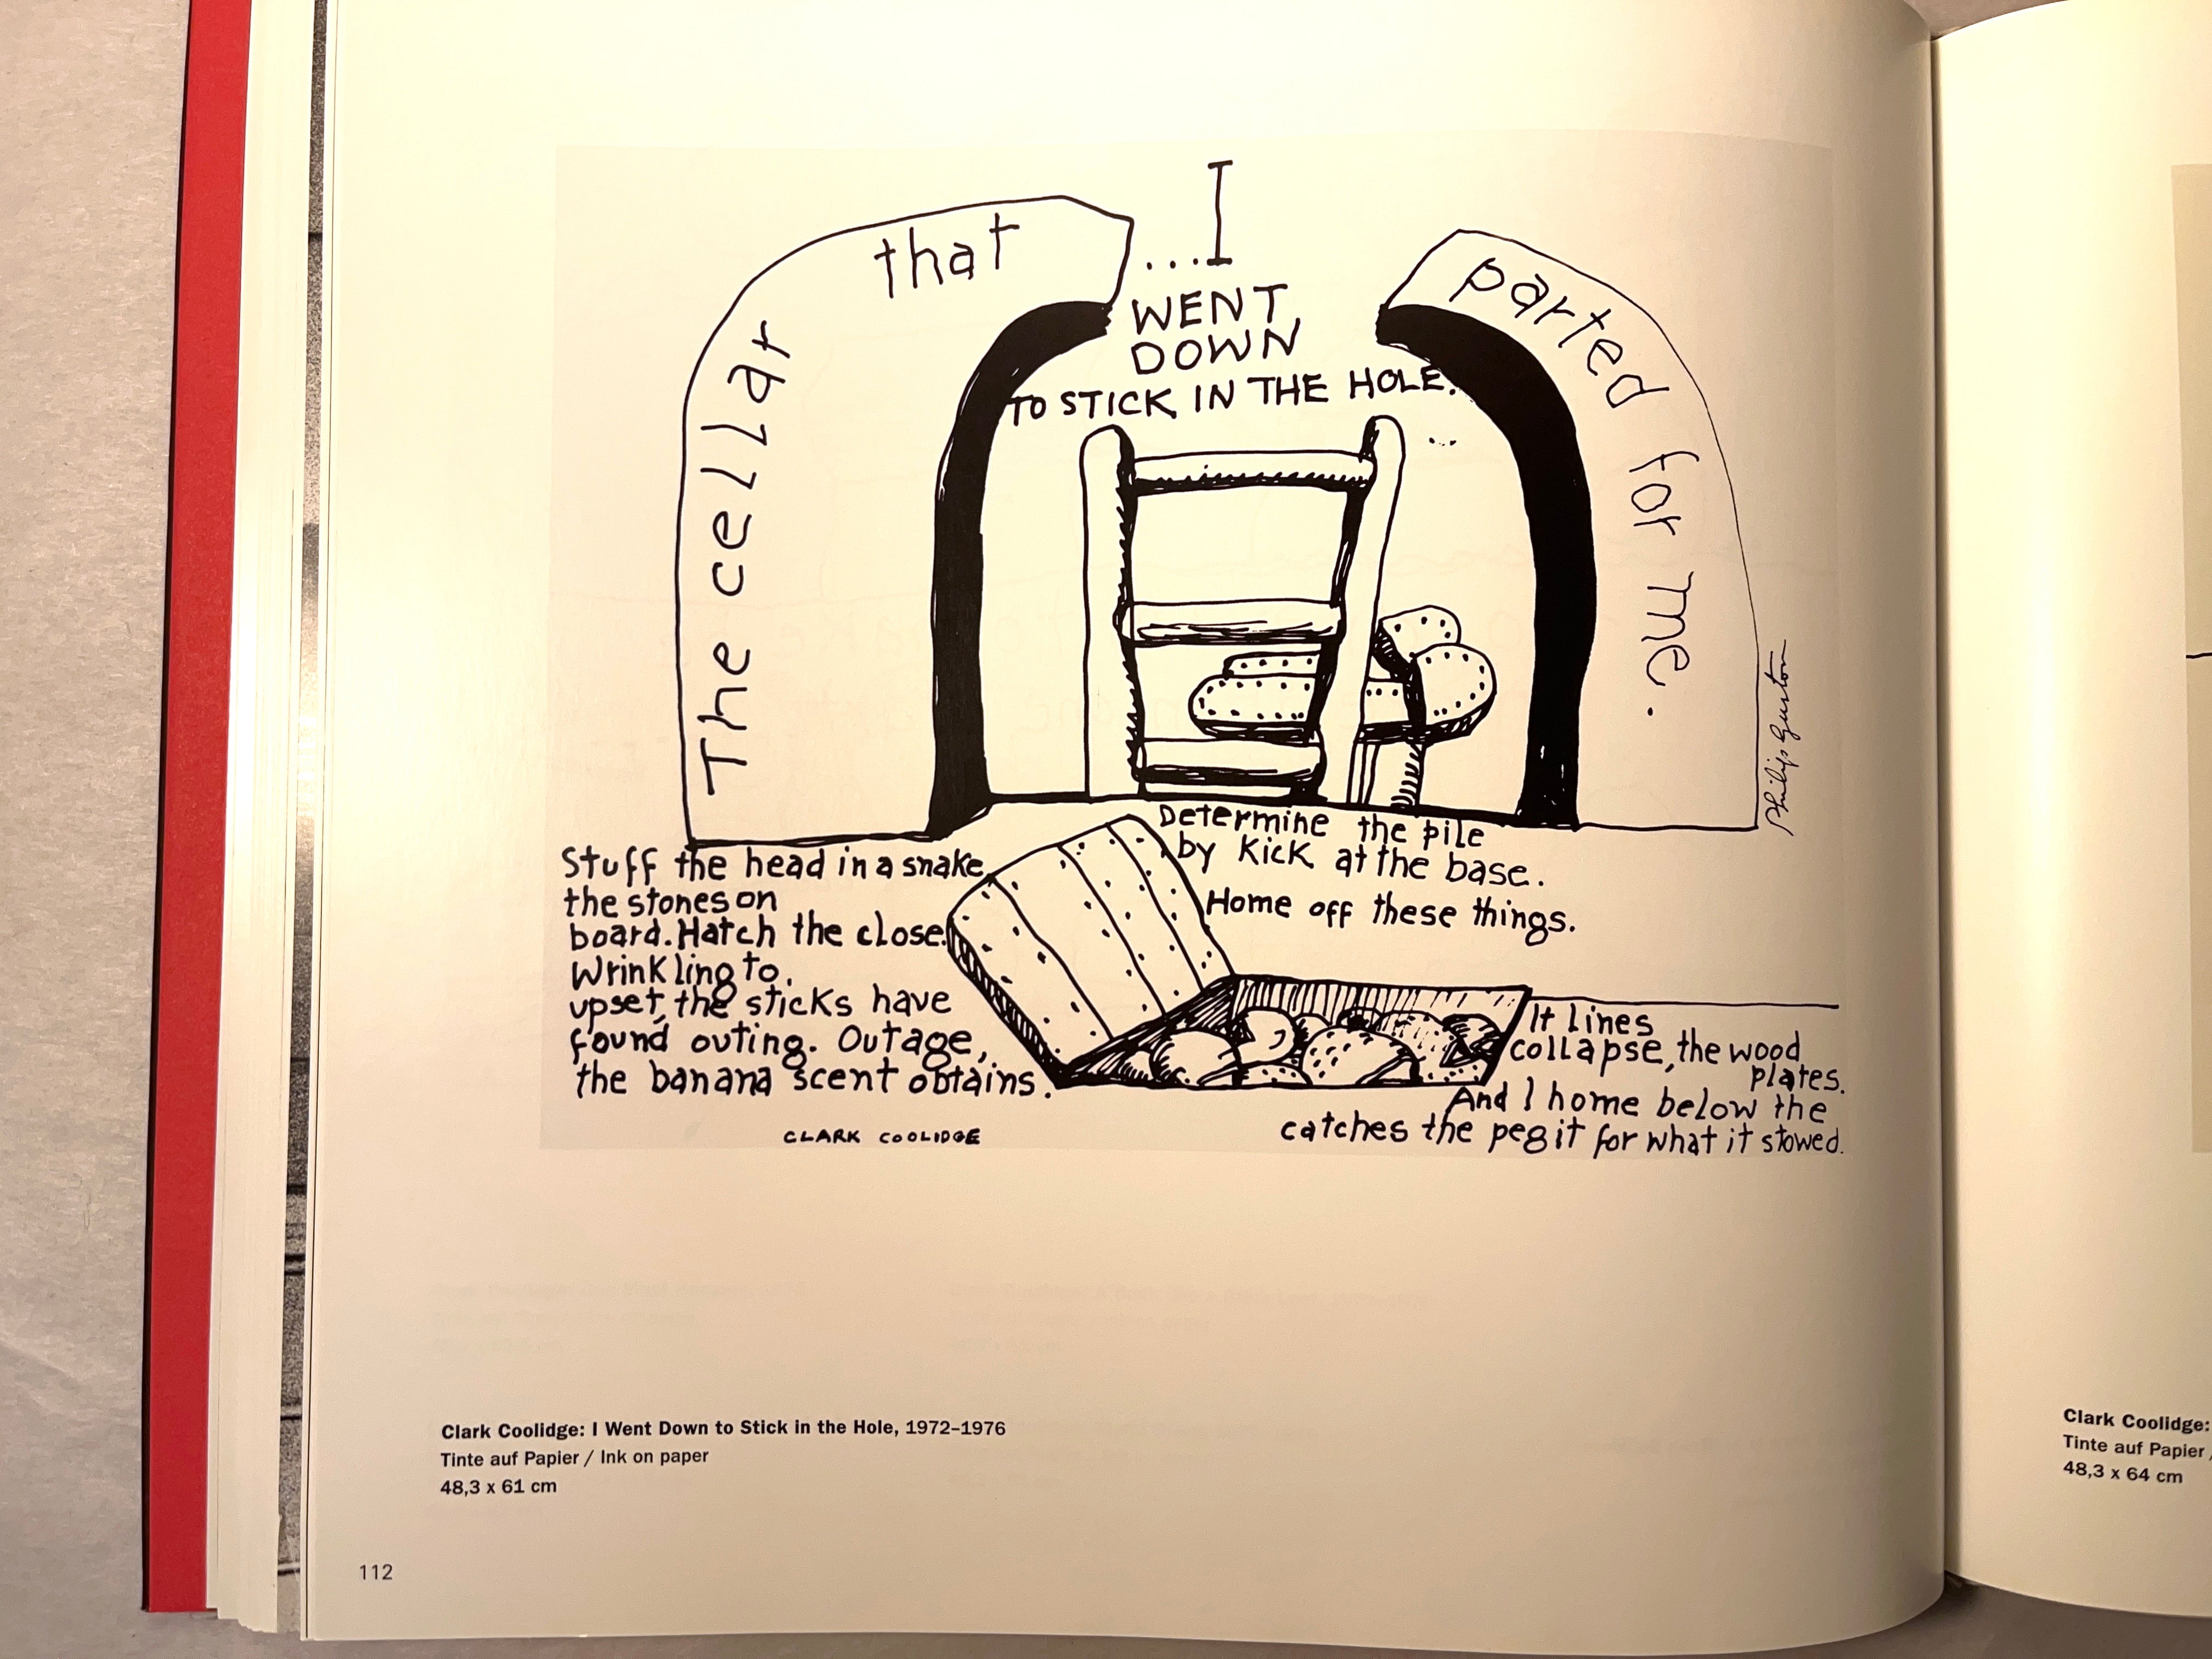 ...I
WENT
DOWN
TO STICK IN THE HOLE.
...
The cellar that
parted for me.
Philip Guston
Determine the pile
by kick at the base.
Home off these things.
Stuff the head in a snake,
the stones on
board. Hatch the close.
Wrinkling to,
upset, the sticks have
found outing. Outage,
the banana scent obtains.
It lines
collapse, the wood
plates.
And I home below the
catches the peg it for what it stowed.
CLARK COOLIDGE
Clark Coolidge: I Went Down to Stick in the Hole, 1972–1976
Tinte auf Papier / Ink on paper
48,3 x 61 cm
112
Clark Coolidge:
Tinte auf Papier /
48,3 x 64 cm